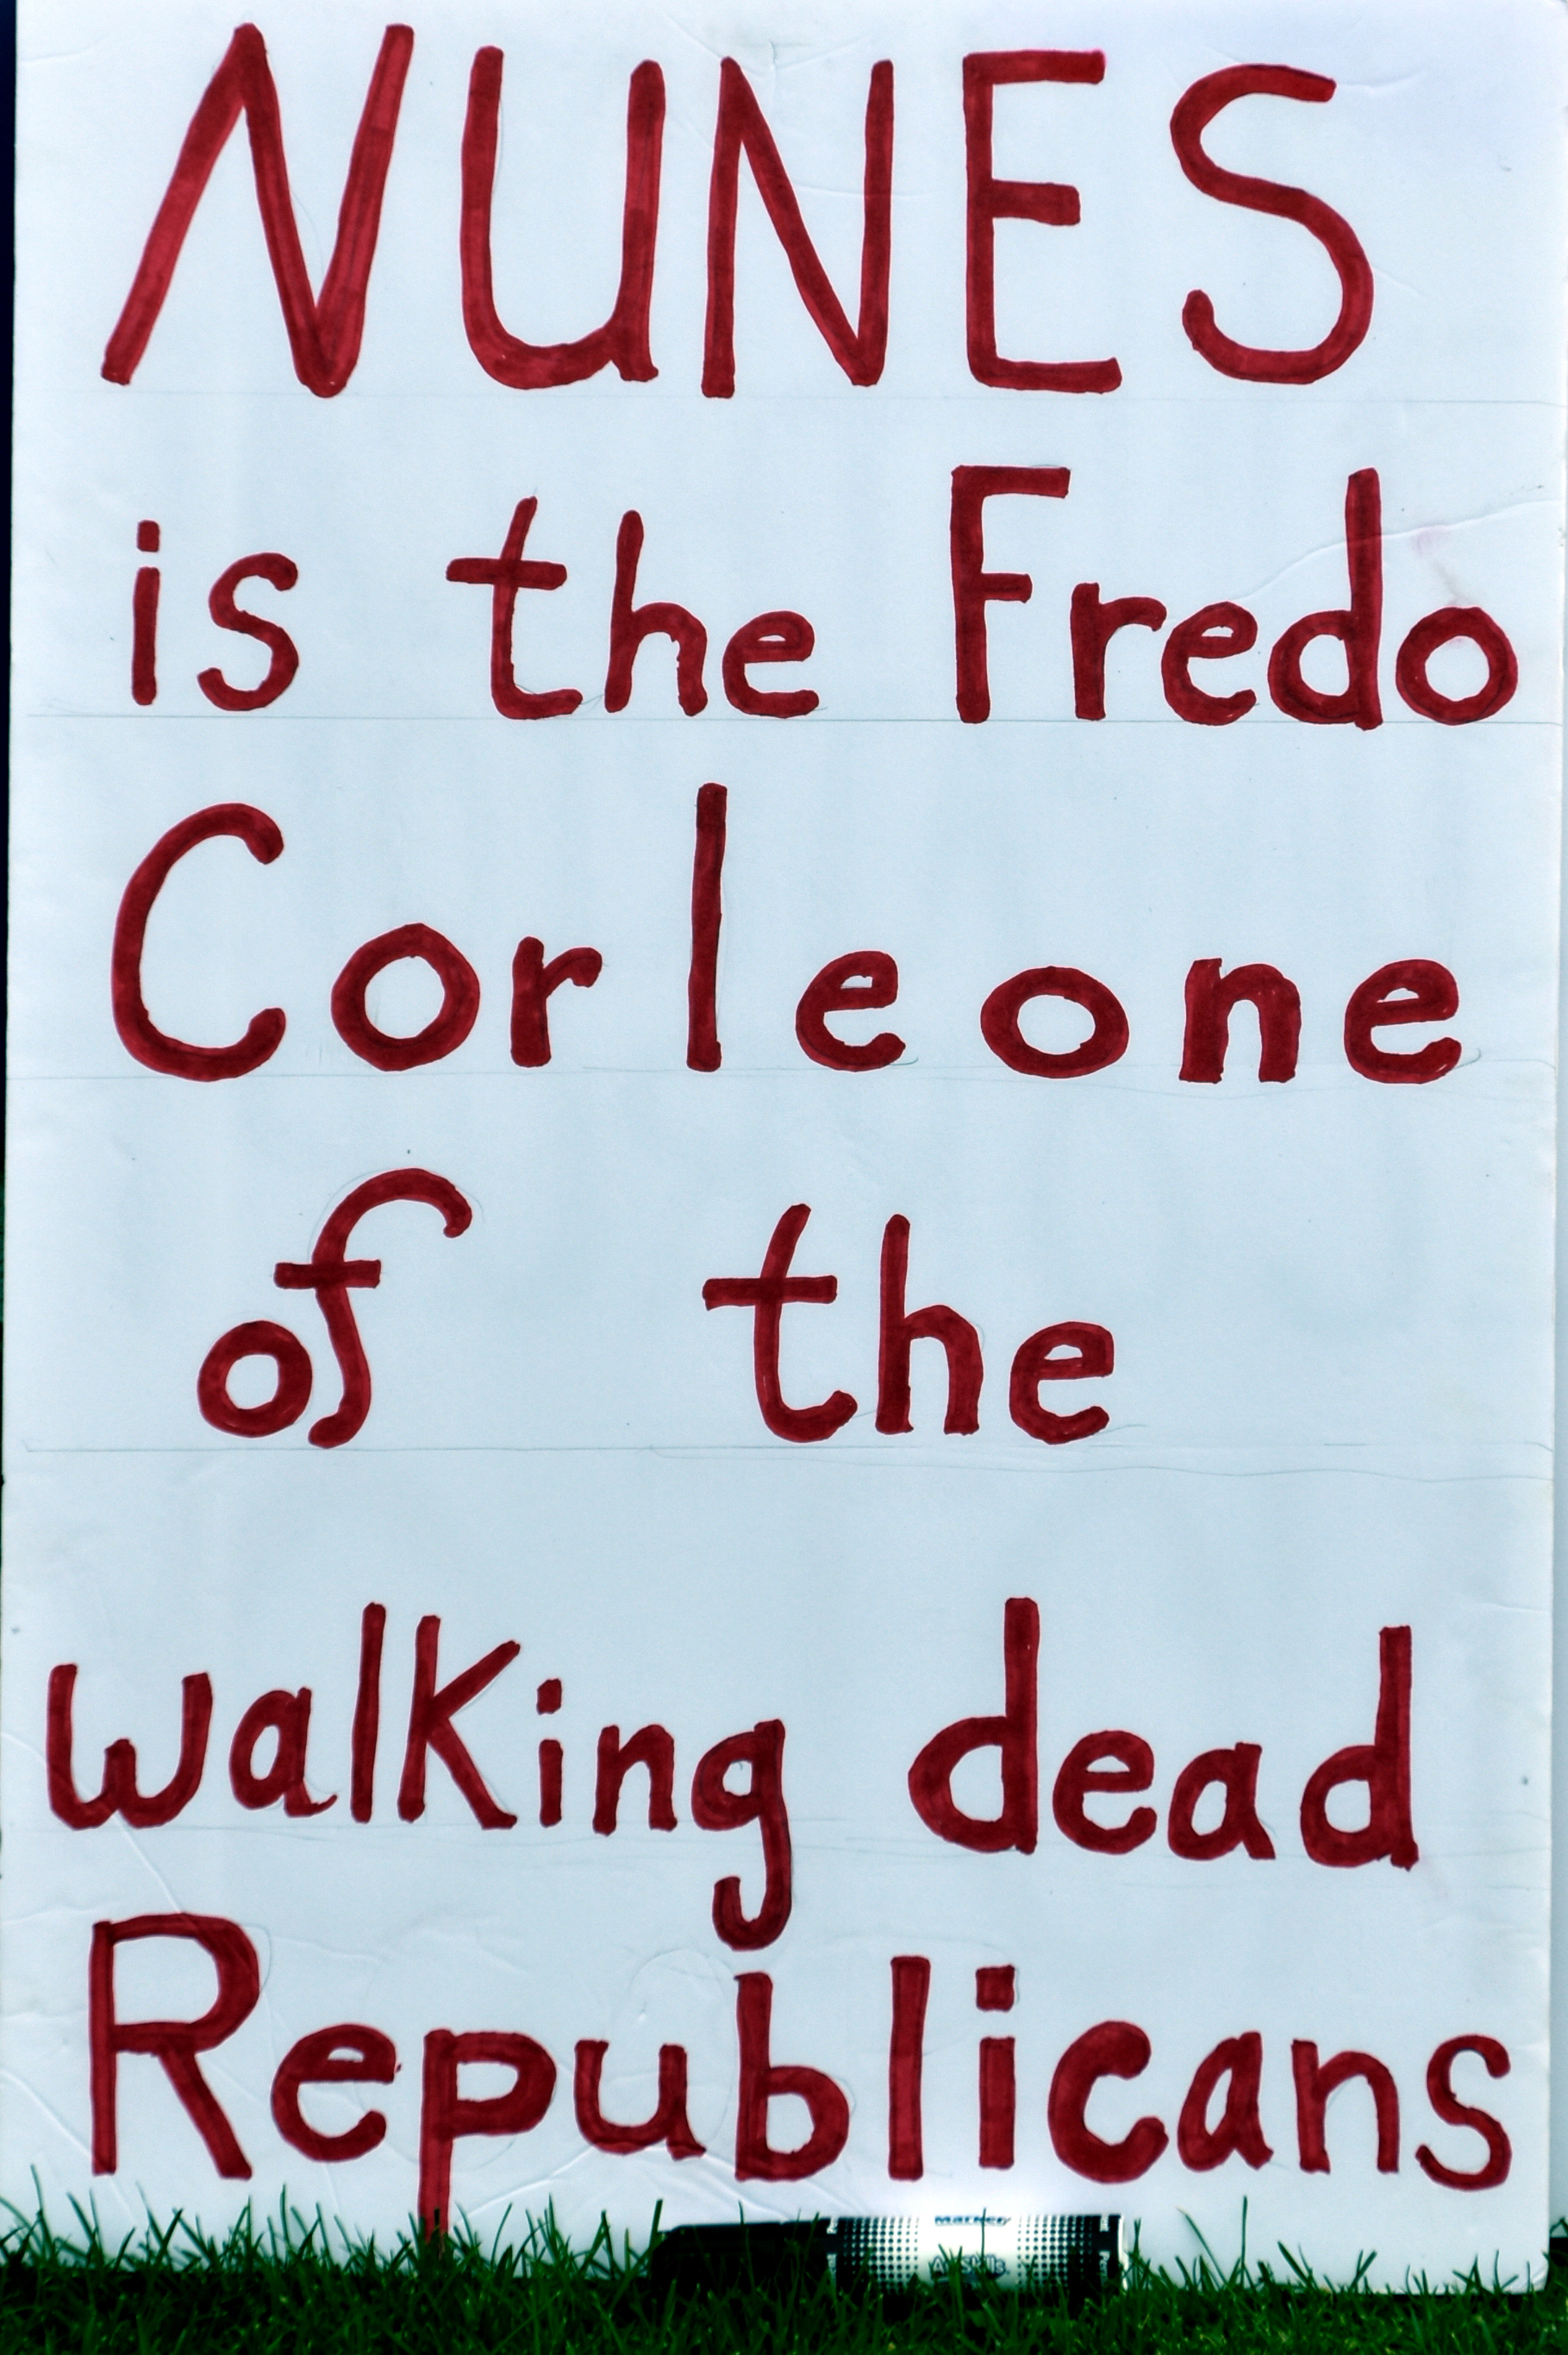 NUNES
is the Fredo
Corleone
of the
walking dead
Republicans
Marker